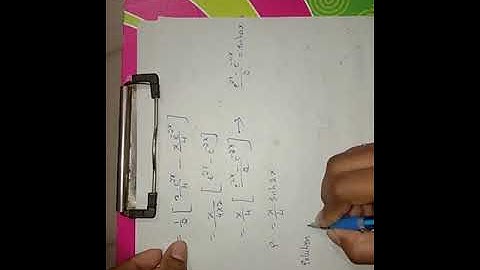 = 1/2 [ x e^2x / 4 - x e^-2x / 4 ]
= x / 4x2 [ e^2x - e^-2x ]
= x/4 [ e^2x - e^-2x / 2 ] →
e^2x - e^-2x / 2 = sinh2x
= x/4 sinh2x
solution